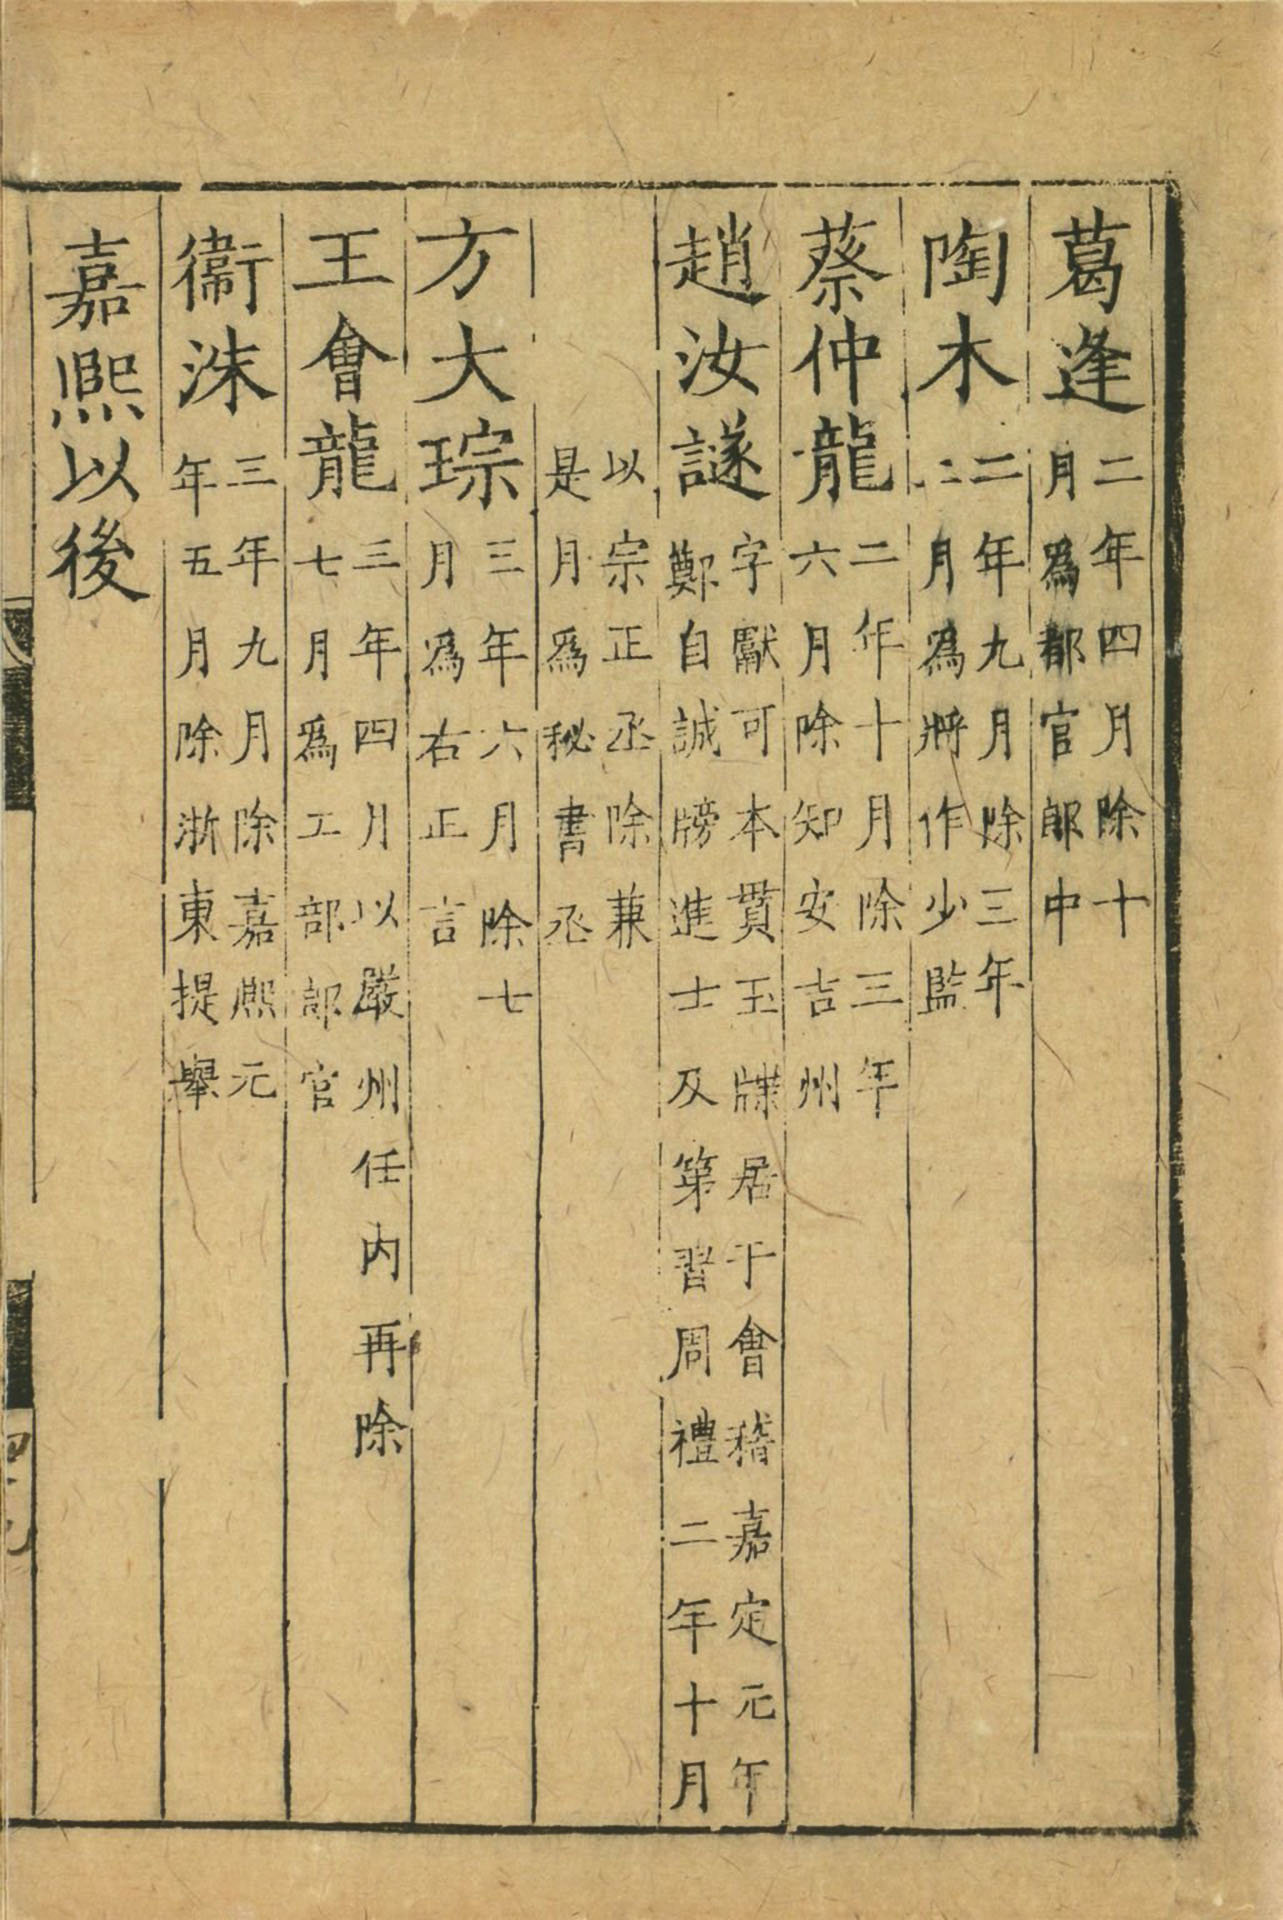 葛逢二年四月除十月爲都官郎中
陶木二年九月除三年二月爲將作少監
蔡仲龍二年十月除三年六月除知安吉州
趙汝䜐字獻可本貫玉牒居于會稽嘉定元年鄭自誠牓進士及第習周禮二年十月
以宗正丞除兼是月爲秘書丞
方大琮三年六月除七月爲右正言
王會龍三年四月以嚴州任内再除七月爲工部郎官
衞洙三年九月除嘉熈元年五月除浙東提舉
嘉熈以後